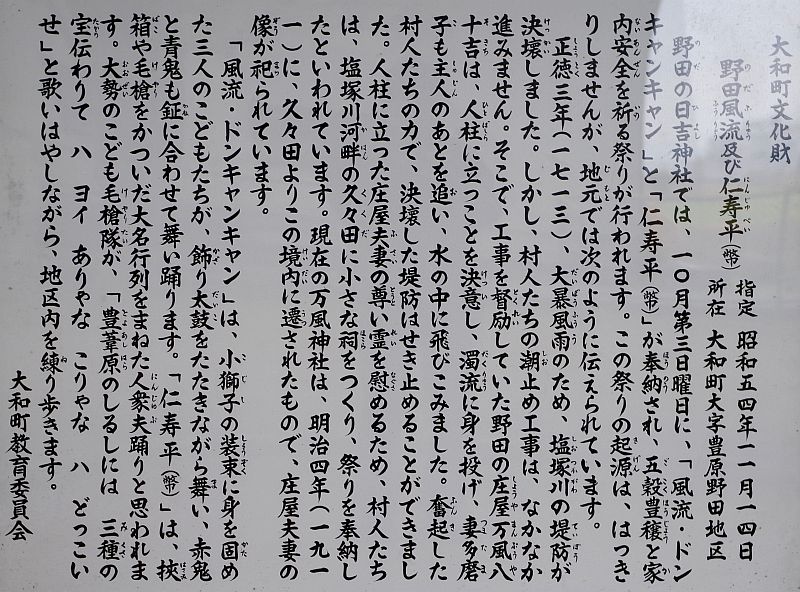 大和町文化財
野田風流及び仁寿平(幣)
指定 昭和五四年一一月一四日
所在 大和町大字豊原野田地区
野田の日吉神社では、一〇月第三日曜日に、「風流・ドン
キャンキャン」と「仁寿平(幣)」が奉納され、五穀豊穣と家
内安全を祈る祭りが行われます。この祭りの起源は、はっき
りしませんが、地元では次のように伝えられています。
正徳三年(一七一三)、大暴風雨のため、塩塚川の堤防が
決壊しました。しかし、村人たちの潮止め工事は、なかなか
進みません。そこで、工事を督励していた野田の庄屋万風八
十吉は、人柱に立つことを決意し、濁流に身を投げ、妻多磨
子も主人のあとを追い、水の中に飛びこみました。奮起した
村人たちの力で、決壊した堤防はせき止めることができまし
た。人柱に立った庄屋夫妻の尊い霊を慰めるため、村人たち
は、塩塚川河畔の久々田に小さな祠をつくり、祭りを奉納し
たといわれています。現在の万風神社は、明治四年(一九一
一)に、久々田よりこの境内に遷されたもので、庄屋夫妻の
像が祀られています。
「風流・ドンキャンキャン」は、小獅子の装束に身を固め
た三人のこどもたちが、飾り太鼓をたたきながら舞い、赤鬼
と青鬼も鉦に合わせて舞い踊ります。「仁寿平(幣)」は、挾
箱や毛槍をかついだ大名行列をまねた人衆夫踊りと思われま
す。大勢のこども毛槍隊が、「豊葦原のしるしには 三種の
宝伝わりて ハ ヨイ ありゃな こりゃな ハ どっこい
せ」と歌いはやしながら、地区内を練り歩きます。
大和町教育委員会